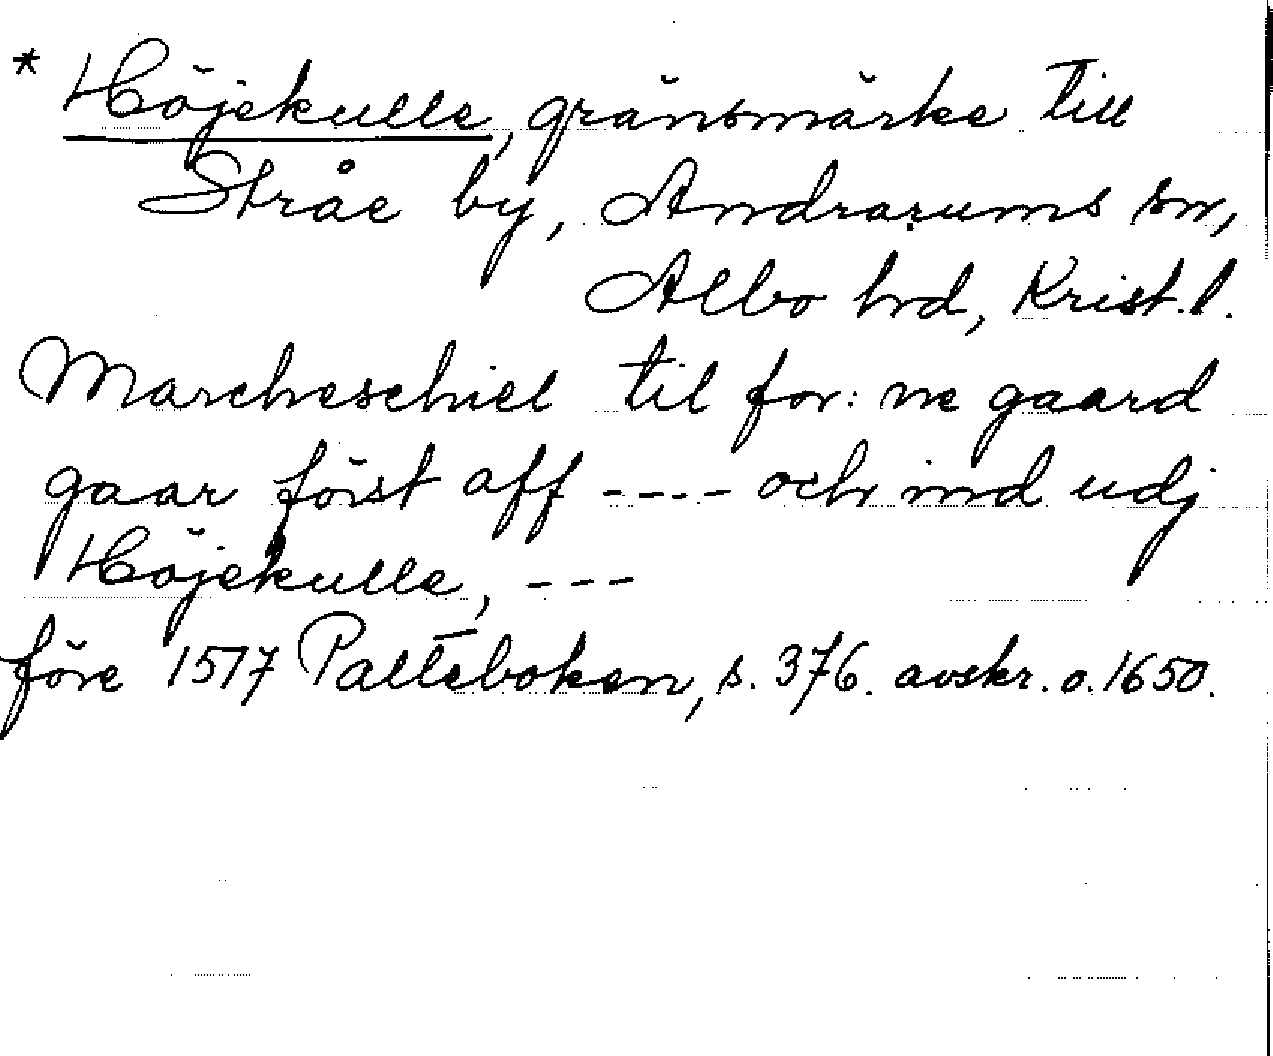 * Höjekulle, gränsmärke till
Stråe by, Andrarums sn,
Albo hrd, Krist.l.
Marcheschiel til for: ne gaard
gaar först aff ---- och ind udj
Höjekulle, ---
före 1517 Palteboken, s. 376. avskr. o. 1650.